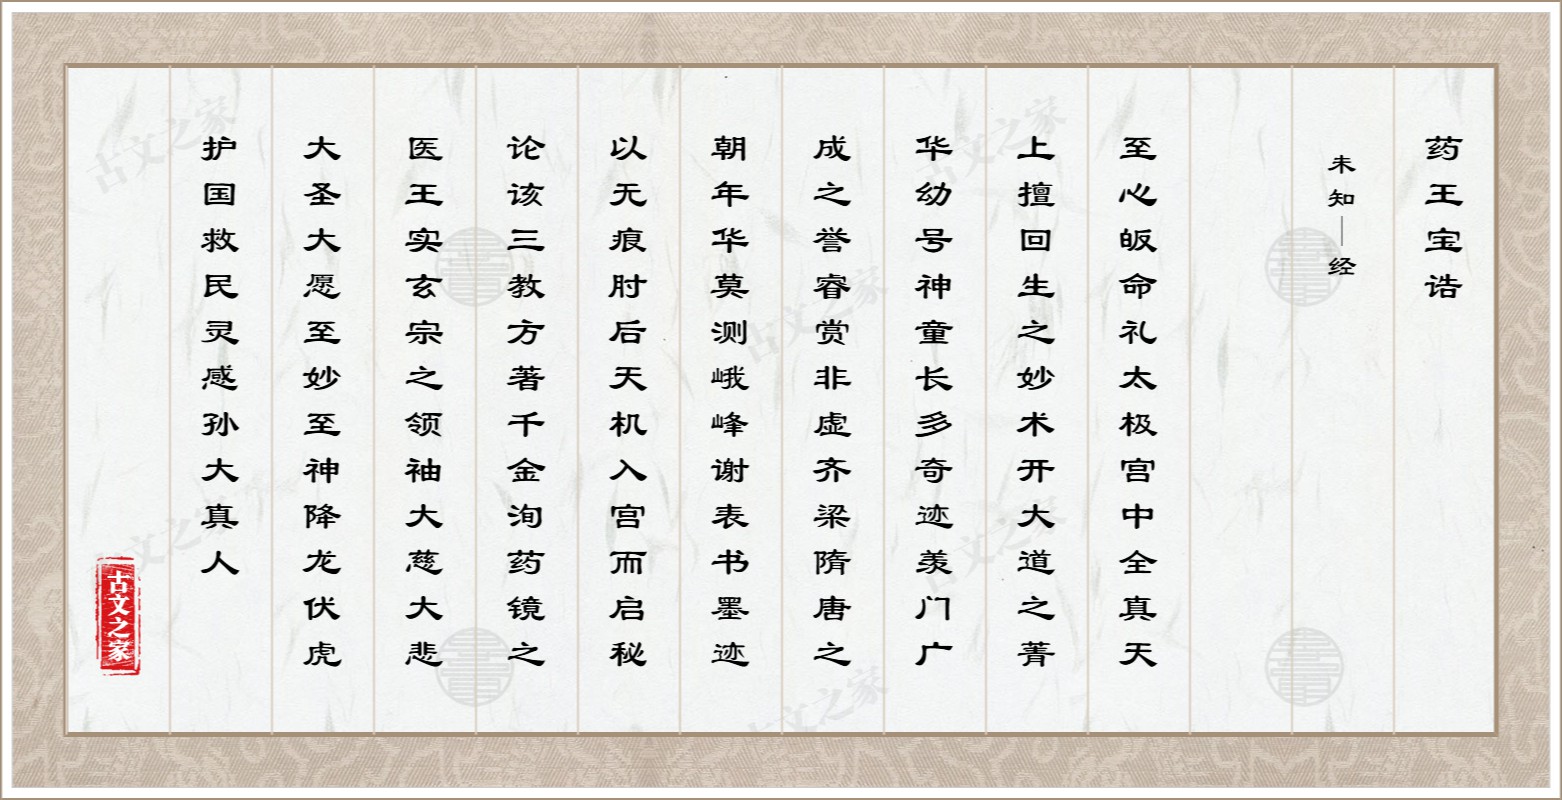 药王宝诰
未知｜经
至心皈命礼太极宫中全真天
上擅回生之妙术开大道之菁
华幼号神童长多奇迹羡门广
成之誉睿赏非虚齐梁隋唐之
朝年华莫测峨峰谢表书墨迹
以无痕肘后天机入宫而启秘
论该三教方著千金洵药镜之
医王实玄宗之领袖大慈大悲
大圣大愿至妙至神降龙伏虎
护国救民灵感孙大真人
古文之家